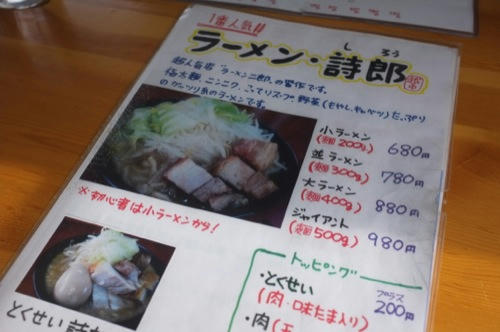 1番人気!!
しろう
ラーメン・詩郎
超人気店 "ラーメン二郎"の習作です。
極太麺、ニンニク、こってりスープ、野菜(もやし、キャベツ)たっぷり
のガッツリ系のラーメンです。
小ラーメン
(麺200g) 680円
並ラーメン
(麺300g) 780円
大ラーメン
(麺400g) 880円
ジャイアント
(麺500g) 980円
※初心者は小ラーメンから!
トッピング
・とくせい プラス
(肉・味たま入り) 200円
・肉
とくせい 詩